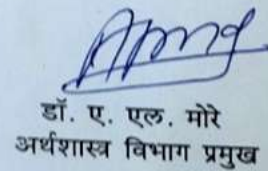 डॉ. ए. एल. मोरे
अर्थशास्त्र विभाग प्रमुख